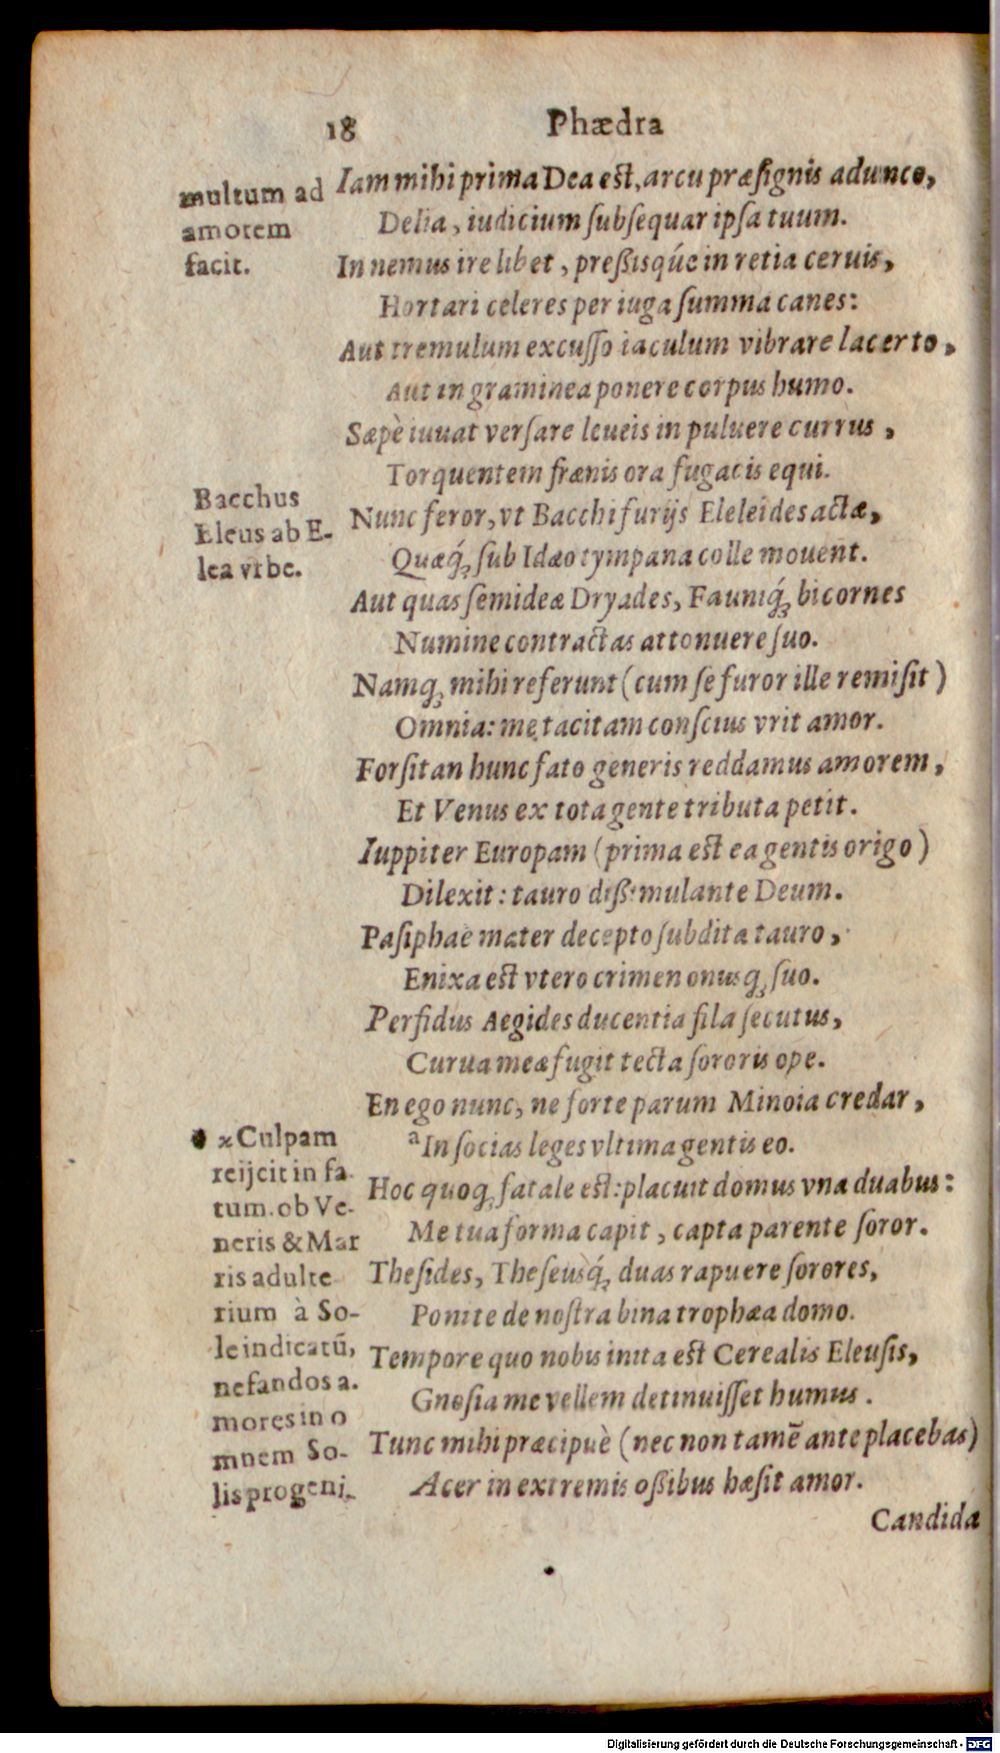 18 Phædra
multum ad
amorem
facit.
Iam mihi prima Dea est, arcu præſignis adunco,
Delia, iudicium ſubſequar ipſa tuum.
In nemus ire libet, preßisq́úe in retia ceruis,
Hortari celeres per iuga ſumma canes:
Aut tremulum excuſſo iaculum vibrare lacerto,
Aut in graminea ponere corpus humo.
Sæpè iuuat verſare leueis in puluere currus,
Torquentem frænis ora fugacis equi.
Bacchus
Eleus ab E-
lea vrbe.
Nunc feror, vt Bacchi furijs Eleleides actæ,
Quæq́; ſub Idæo tympana colle mouent.
Aut quas ſemideæ Dryades, Fauniq́; bicornes
Numine contractas attonuere ſuo.
Namq; mihi referunt (cum ſe furor ille remiſit)
Omnia: me tacitam conſcius vrit amor.
Forſitan hunc fato generis reddamus amorem,
Et Venus ex tota gente tributa petit.
Iuppiter Europam (prima est ea gentis origo)
Dilexit: tauro dißimulante Deum.
Paſiphaë mater decepto ſubdita tauro,
Enixa est vtero crimen onusq; ſuo.
Perfidus Aegides ducentia fila ſecutus,
Curua meæ fugit tecta ſororis ope.
En ego nunc, ne forte parum Minoia credar,
a In ſocias leges vltima gentis eo.
Hoc quoq; fatale est: placuit domus vna duabus:
Me tua forma capit, capta parente ſoror.
Theſides, Theſeusq́; duas rapuere ſorores,
Ponite de noſtra bina trophæa domo.
Tempore quo nobis inita est Cerealis Eleuſis,
Gnoſia me vellem detinuiſſet humus.
Tunc mihi præcipuè (nec non tamē ante placebas)
Acer in extremis oßibus hæſit amor.
Culpam
reijcit in fa-
tum. ob Ve-
neris & Mar
tis adulte
rium à So-
le indicatū,
nefandos a-
mores in o
mnem So-
lis progeni-
Candida
Digitalisierung gefördert durch die Deutsche Forschungsgemeinschaft - DFG